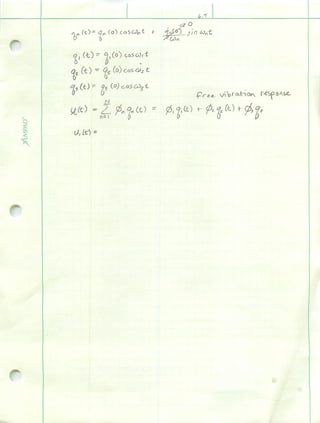 6.7
qₙ(t) = qₙ(0) cos ωₙt + q̇ₙ(0)/ωₙ sin ωₙt → 0
q₁(t) = q₁(0) cos ω₁t
q₂(t) = q₂(0) cos ω₂t
q₃(t) = q₃(0) cos ω₃t
free vibration response
u(t) = Σ φₙ qₙ(t) = φ₁ q₁(t) + φ₂ q₂(t) + φ₃ q₃
u₁(t) =